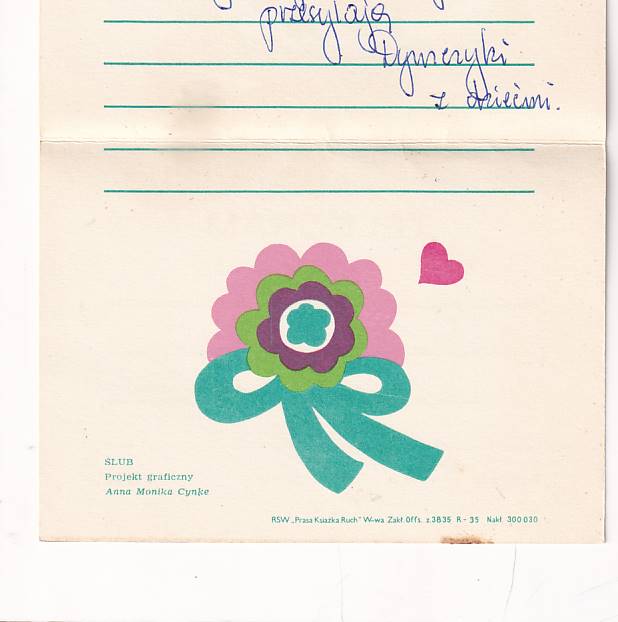 przesyłają
Dymeryki
z dziećmi.
ŚLUB
Projekt graficzny
Anna Monika Cynke
RSW „Prasa Książka Ruch" W-wa Zakł. Offs. z. 3835 R - 35 Nakł. 300 030